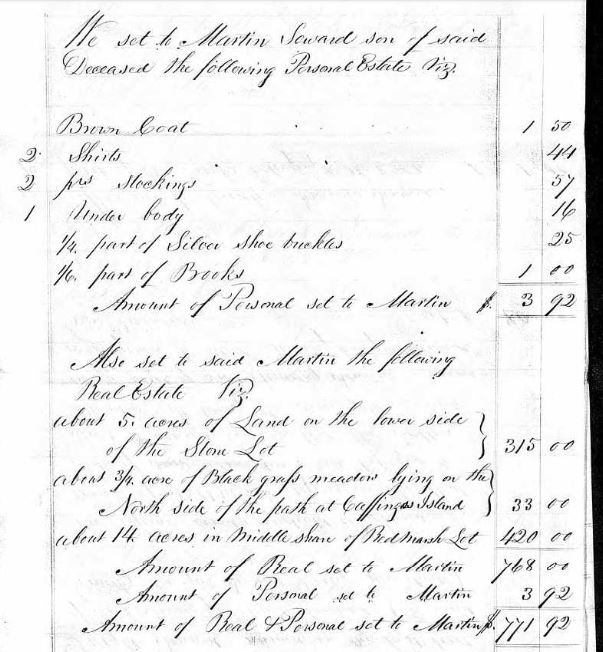 We set to Martin Soward son of said
Deceased the following Personal Estate Viz.
Brown Coat 1 50
2 Shirts 44
2 prs Stockings 57
1 Under body 16
1/4 part of Silver Shoe buckles 25
1/6 part of Books 1 00
Amount of Personal set to Martin $. 3 92
Also set to said Martin the following
Real Estate Viz.
about 5. acres of Land on the lower side
of the Stone Lot 315 00
about 3/4 acre of Black grass meadow lying on the
North side of the path at Caffinges Island 33 00
about 14 acres in Middle share of Red Marsh Lot 420 00
Amount of Real set to Martin 768 00
Amount of Personal set to Martin 3 92
Amount of Real & Personal set to Martin $. 771 92